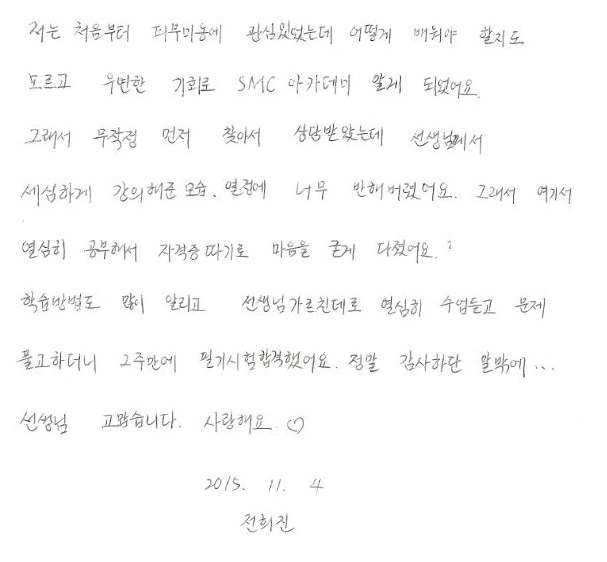 저는 처음부터 피부미용에 관심있었는데 어떻게 배워야 할지도
모르고 우연한 기회로 SMC 아카데미 알게 되었어요.
그래서 무작정 먼저 찾아서 상담받았는데 선생님께서
세심하게 강의해준 모습, 열정에 너무 반해버렸어요. 그래서 여기서
열심히 공부해서 자격증따기로 마음을 굳게 다졌어요.
학습방법도 많이 알리고 선생님가르친데로 열심히 수업듣고 문제
풀고하더니 2주만에 필기시험합격했어요. 정말 감사하단 말밖에...
선생님 고맙습니다. 사랑해요 ♡
2015. 11. 4
전희진